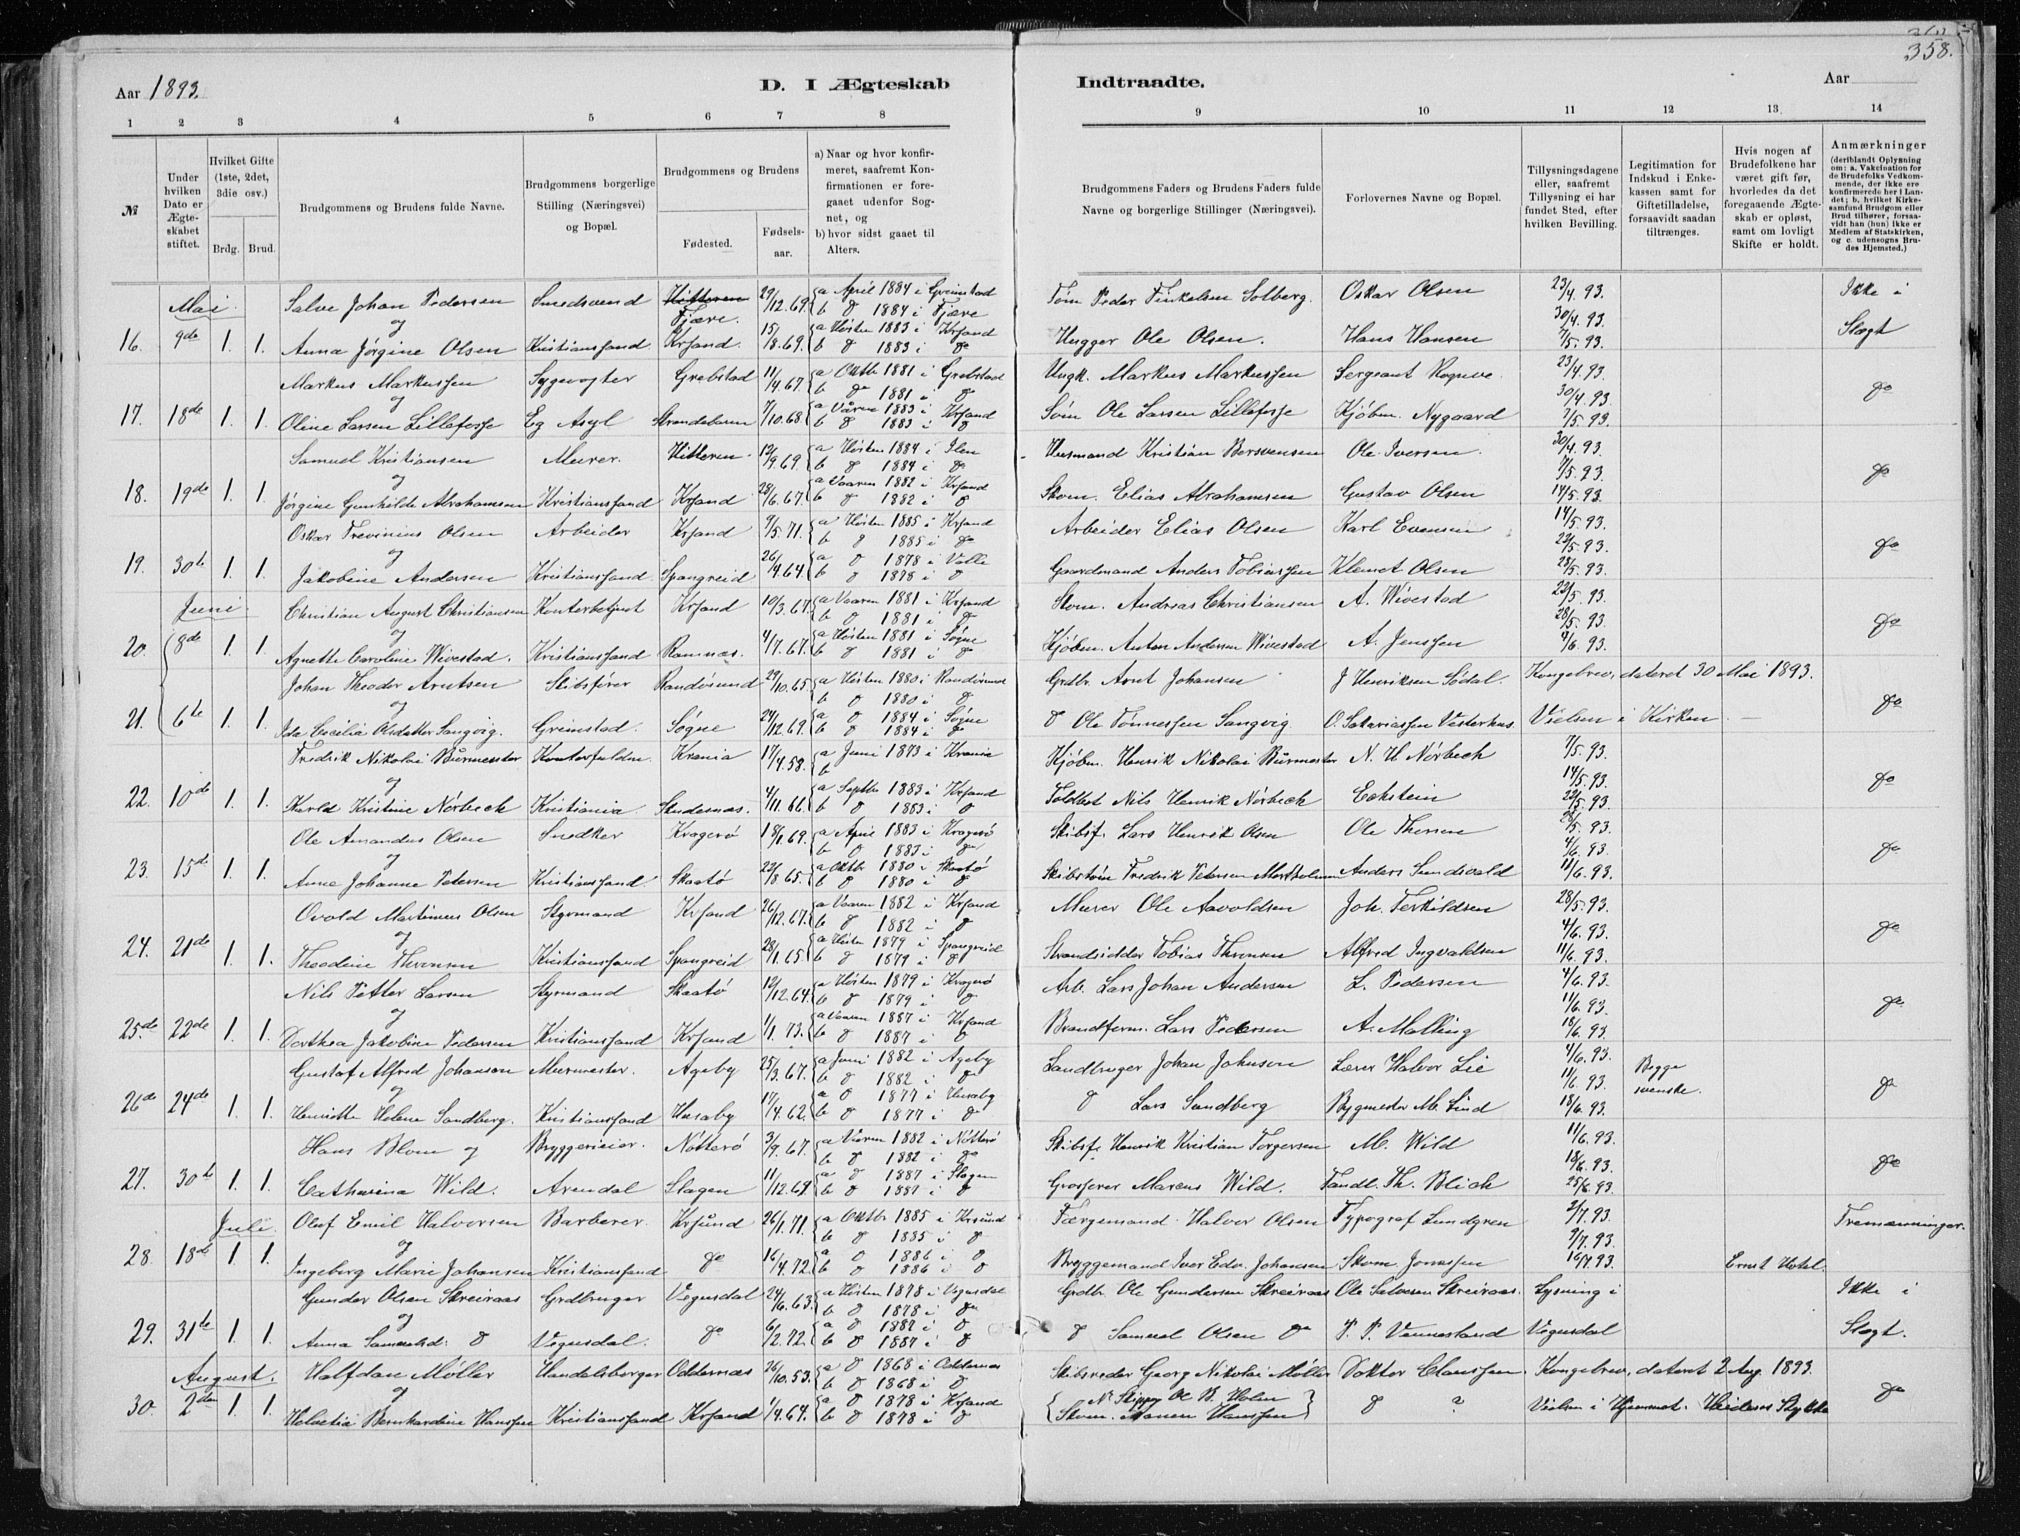 358.
Aar 1893. D. I Ægteskab Indtraadte. Aar
1 2 3 4 5 6 7 8 9 10 11 12 13 14
№
Under hvilken Dato er Ægteskabet stiftet.
Hvilket Gifte (1ste, 2det, 3die osv.)
Brdg. Brud.
Brudgommens og Brudens fulde Navne.
Brudgommens borgerlige Stilling (Næringsvei) og Bopæl.
Brudgommens og Brudens
Fødested. Fødselsaar.
a) Naar og hvor konfirmeret, saafremt Konfirmationen er foregaaet udenfor Sognet, og
b) hvor sidst gaaet til Alters.
Brudgommens Faders og Brudens Faders fulde Navne og borgerlige Stillinger (Næringsvei).
Forlovernes Navne og Bopæl.
Tillysningsdagene eller, saafremt Tillysning ei har fundet Sted, efter hvilken Bevilling.
Legitimation for Indskud i Enkekassen samt for Giftetilladelse, forsaavidt saadan tiltrænges.
Hvis nogen af Brudefolkene har været gift før, hvorledes da det foregaaende Ægteskab er opløst, samt om lovligt Skifte er holdt.
Anmærkninger
(deriblandt Oplysning om: a. Vakcination for de Brudefolks Vedkommende, der ikke ere konfirmerede her i Landet; b. hvilket Kirkesamfund Brudgom eller Brud tilhører, forsaavidt han (hun) ikke er Medlem af Statskirken, og c. udensogns Brudes Hjemsted.)
Mai. Salve Johan Pedersen Smedsvend Hitteren Fjære. 29/12.69. a April 1884 i Grimstad b d 1884 i Fjære Tøm Peder Terkelsen Solberg. Oskar Olsen 23/4.93. 30/4.93. Ikke i
og
16. 9de 1. 1. Anna Jørgine Olsen Kristianssand. Krsand. 15/8.69. a Høsten 1883 i Krsand b d 1883 i do Hugger Ole Olsen. Hans Hansen 7/5.93. Slægt
Markus Markussen Sygevogter Grebstad 11/4.67. a Oktbr 1881 i Grebstad b do 1881 i d Ungk. Markus Markussen Sergeant Rognve 23/4.93. 30/4.93. do
og
17. 18de 1. 1. Oline Larsen Lillefosse Eg Asyl Strandebarm 7/10.68. a Våren 1883 i Krsand b d 1883 i d Tøm Ole Larsen Lillefosse Kjøbm. Nygaard 7/5.93.
Samuel Kristiansen Murer. Hitteren 13/9.69. a Høsten 1884 i Ilen b d 1884 i do Husmand Kristian Bersvensen Ole Iversen. 30/4.93. 7/5.93. do
og
18. 19de 1. 1. Jørgine Gunhilde Abrahamsen Kristianssand Krsand 28/6.67. a Vaaren 1882 i Krsand b d 1882 i d Skom. Elias Abrahamsen Gustav Olsen 14/5.93.
Oskar Trevinius Olsen Arbeider Krsand 7/5.71. a Høsten 1885 i Krsand b d 1885 i do Arbeider Elias Olsen Karl Evensen 14/5.93. 22/5.93. do
og
19. 30te 1. 1. Jakobine Andersen Kristianssand. Spangreid 26/4.64. a d 1878 i Valle b d 1878 i d Gaardmand Anders Tobiassen Klemet Olsen 28/5.93.
Juni. Christian August Christiansen Kontorbetjent Krsand 10/3.67. a Vaaren 1881 i Krsand b d 1881 i do Skom. Andreas Christiansen A. Wivestad 22/5.93. 28/5.93. do
og
20. 8de 1. 1. Agnette Caroline Wivestad. Kristianssand Ramnæs. 4/7.67. a Høsten 1881 i Søgne b d 1881 i do Kjøbm. Anton Andersen Wivestad A. Jenssen 4/6.93.
Johan Theodor Arntsen Skibsfører Randøsund 29/10.65. a Høsten 1880 i Randøsund b d 1880 i d Grdbr. Arnt Johansen J Henriksen Sødal. Kongebrev, dateret 30 Mai 1893. do
og
21. 6te 1. 1. Ida Cecilia Olsdatter Sangvig. Grimstad. Søgne 24/12.69. a d 1884 i Søgne b d 1884 i do d Ole Tønnessen Sangvig O. Sakariassen Vesterhus. Vielsen i Kirken —
Fredrik Nikolai Burmester Kontorfuldm. Krania 17/4.58. a Juni 1873 i Krania b Kjøbm. Henrik Nikolai Burmester N. H Nørbech 7/5.93. 14/5.93. do
og
22. 10de 1. 1. Hulda Kristine Nørbech Kristiania Skudesnæs. 4/11.66. a Septbr 1883 i Krsand b d 1883 i d Toldbet Nils Henrik Nørbech Eckstein 22/5.93.
Ole Amandus Olsen Snedker Kragerø 18/1.69. a April 1883 i Kragerø b d 1883 i do Skibsf. Lars Henrik Olsen Ole Thorsen 28/5.93. 4/6.93. do
og
23. 15de 1. 1. Anne Johanne Petersen Kristianssand Skaatø 22/8.65. a Oktbr 1880 i Skaatø b d 1880 i d Skibstøm Fredrik Petersen Anders Sundsvald 11/6.93.
Ovold Martinius Olsen Styrmand Krsand 26/12.67. a Vaaren 1882 i Krsand b d 1882 i d Murer Ole Aavoldsen Joh. Terkildsen 28/5.93. 4/6.93. do
og
24. 21de 1. 1. Theodine Thronsen Kristianssand Spangreid 28/1.65. a Høsten 1879 i Spangreid b d 1879 i d Strandsidder Tobias Thronsen Alfred Ingvaldsen 11/6.93.
Nils Petter Larsen Styrmand Skaatø 10/12.64. a Høsten 1879 i Kragerø b d 1879 i d Arb. Lars Johan Andersen L. Pedersen 4/6.93. 11/6.93. do
og
25de 22de 1. 1. Dorthea Jakobine Pedersen Kristianssand Krsand 1/1.73. a Vaaren 1887 i Krsand b d 1887 i d Brandform. Lars Pedersen A. Malling 18/6.93.
Gustaf Alfred Johanson Murmester. Ageby 25/3.67. a Juni 1882 i Ageby b d 1882 i do Landbruger Johan Johnson Lærer Halvor Lie 4/6.93. 11/6.93. Begge svenske. d
og
26de 24de 1. 1. Henriette Helene Sandberg. Kristianssand Husaby 17/4.62. a d 1877 i Husaby b d 1877 i do d Lars Sandberg Bygmester M. Lind 18/6.93.
Hans Blom og Bryggerieier. Nøtterø 3/9.67. a Våren 1882 i Nøtterø b d 1882 i do Skibsf. Henrik Kristian Torgersen M. Wild 11/6.93. 18/6.93. do
27. 30te 1. 1. Catharina Wild. Arendal Slagen 11/12.69. a d 1887 i Slagen b d 1887 i d Grosserer Marcus Wild. Tandl. Th. Blich 25/6.93.
Juli. Olaf Emil Halvorsen Barberer. Krsund 26/1.71. a Oktbr 1885 i Krsund b d 1885 i d Færgemand Halvor Olsen Typograf Lundgren 2/7.93. 9/7.93. Tremænninger.
og
28. 18de 1. 1. Ingeborg Marie Johansen Kristianssand do 16/4.72. a d 1886 i d b d 1886 i d Bryggemand Iver Edv. Johansen Skom Jonassen 16/7.93. Ernst Hotel.
Gunder Olsen Skreiraas Grdbruger Vegusdal 24/6.63. a Høsten 1878 i Vegusdal b d 1878 i do Grdbr. Ole Gundersen Skreiraas Ole Salvesen Skreiraas. Lysning i Ikke i
og
29. 31te 1. 1. Anna Samuelsd. d Vegusdal. do 6/2.72. a d 1887 i d b d 1887 i d d Samuel Olsen do P. P. Vennesland Vegusdal Slægt.
August. Halfdan Møller Handelsborger Oddernæs 26/10.53. a d 1868 i Oddernæs b d 1868 i d Skibsreder Georg Nikolai Møller Doktor Claussen. Kongebrev, dateret 2 Aug. 1893.
og N: Skipp Ol B. Holm
30. 2den 1. 1. Helvetia Bernhardine Hanssen Kristianssand Krsand 1/4.64. a d 1878 i Krsand b d 1878 i d Skom. Hanssen d ? Vielsen i Hjemmet. do